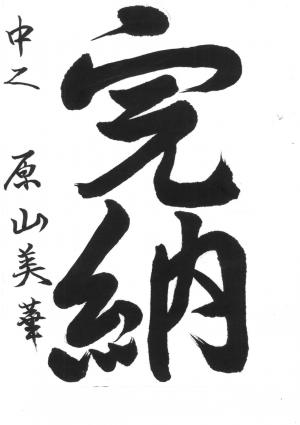 完納
中二 原山美華